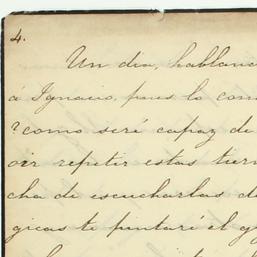 4.
Un dia, habland
á Ignacio, pues lo com
?como seré capaz de
oir repetir estas tiern
cha de escucharlas d
gicas te pintaré el g